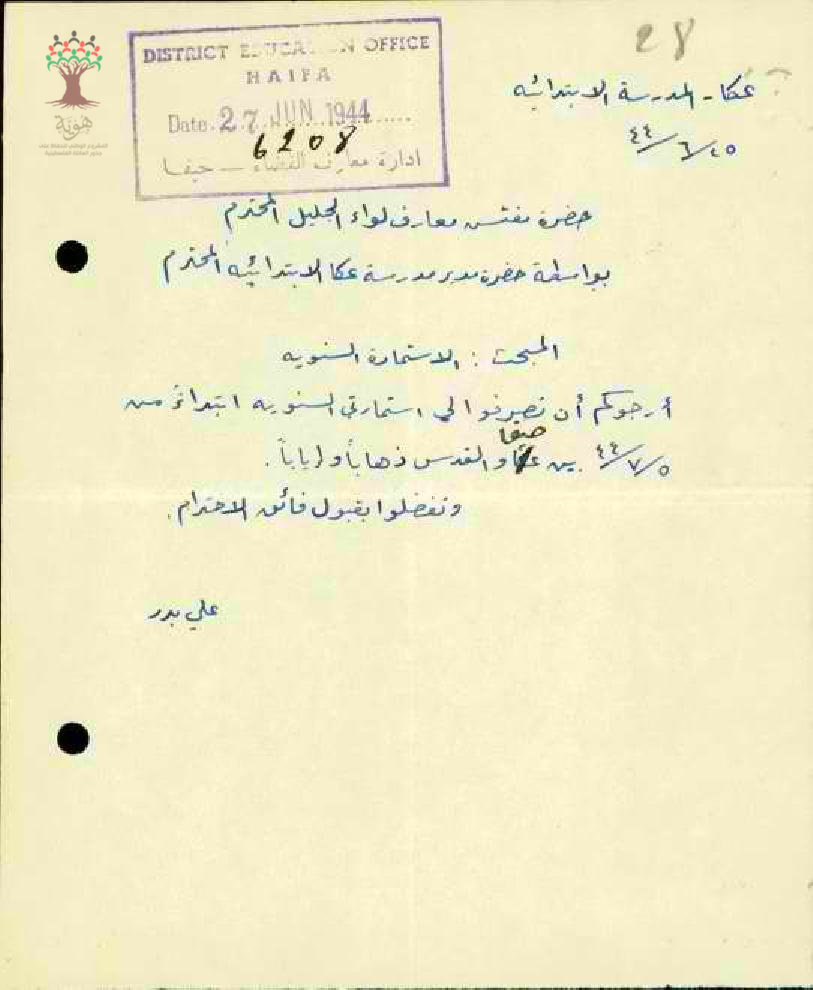 28
DISTRICT EDUCATION OFFICE
HAIFA
Date. 27 JUN 1944
6208
ادارة معارف القضاء — حيفا
هوية
عكا - المدرسة الابتدائيه
٢٥/٦/٤٤
حضرة مفتش معارف لواء الجليل المحترم
بواسطة حضرة مدير مدرسة عكا الابتدائيه المحترم
المبحث : الاستمارة السنويه
أرجوكم أن تصرفوا لي استمارتي السنويه ابتداءً من
حيفا
٥/٧/٤٤ بين عكا والقدس ذهاباً واياباً.
وتفضلوا بقبول فائق الاحترام.
علي بدر